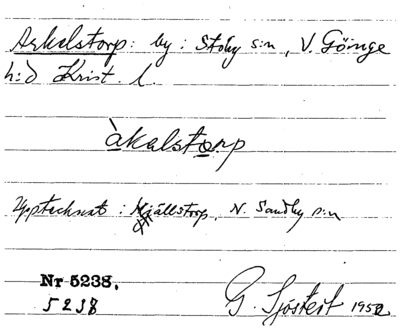 Askalstorp: by: Stoby s:n, V. Göinge
h:d Krist. l.
àkalstorp
Upptecknat: Hjällstorp, N. Sandby s:n
Nr 5238,
5238
G. Sjöstedt 1950